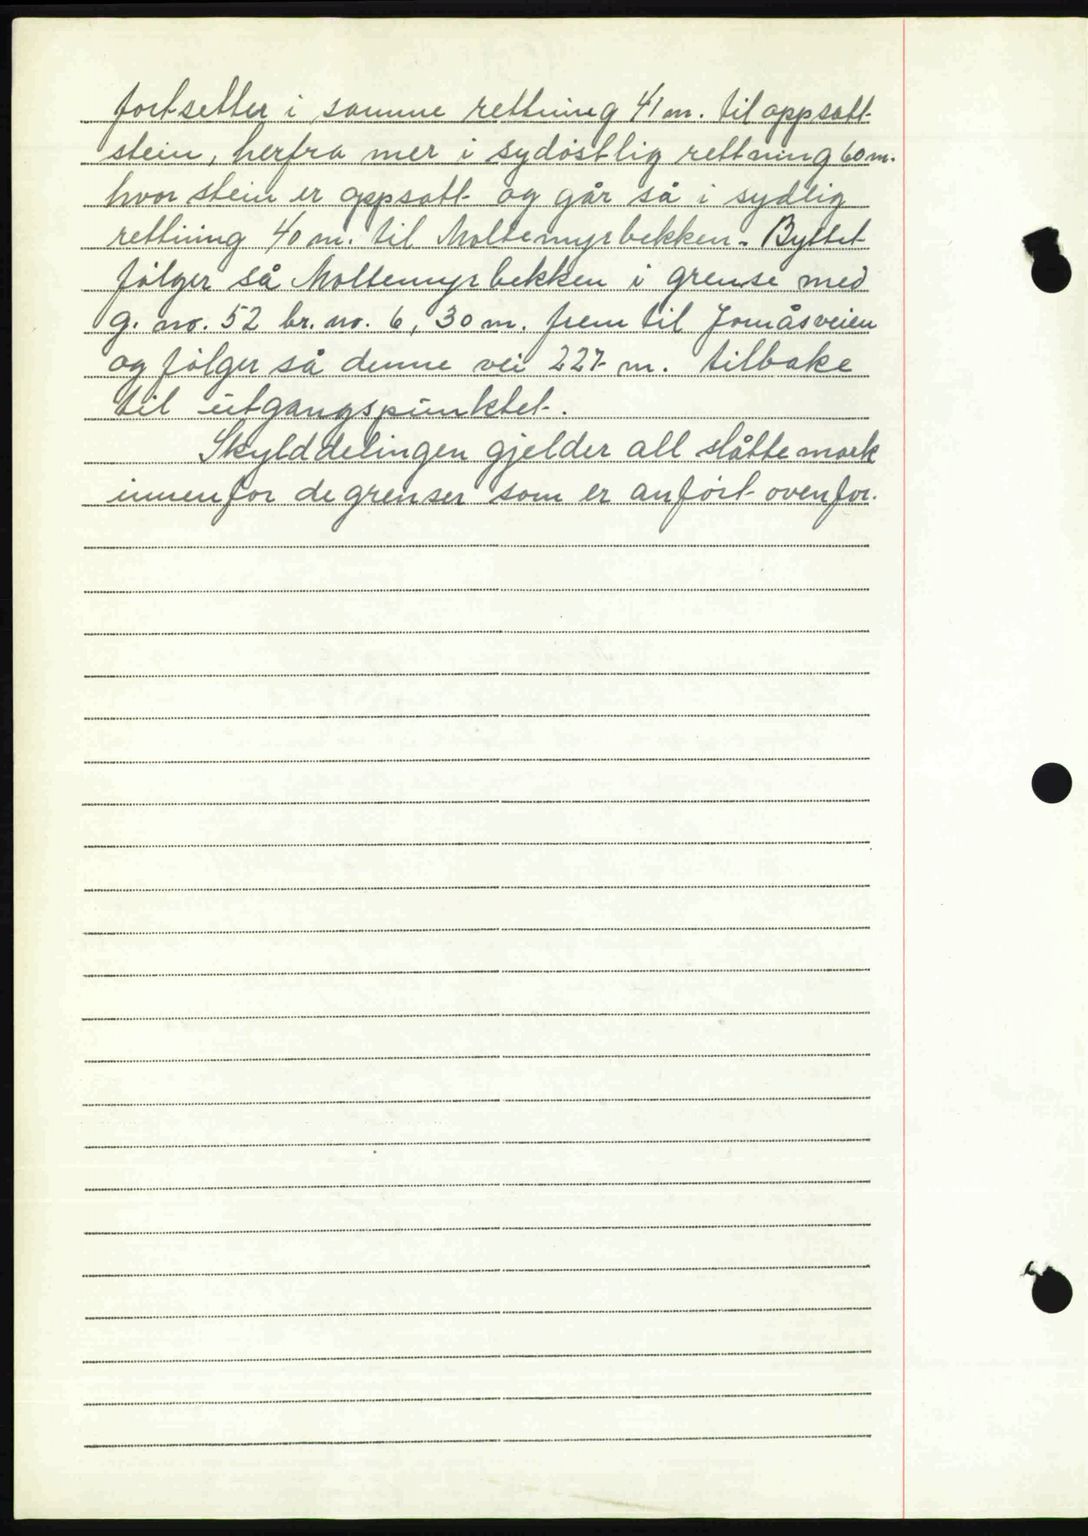 fortsetter i samme rettning 41 m. til oppsatt
stein, herfra mer i sydöstlig rettning 60 m.
hvor stein er oppsatt og går så i sydlig
rettning 40 m. til Moltemyrbekken. Byttet
følger så Moltemyrbekken i grense med
g. no. 52 br. no. 6, 30 m. frem til Jomåsveien
og følger så denne vei 227 m. tilbake
til utgangspunktet.
Skylddelingen gjelder all slåttemark
innenfor de grenser som er anført ovenfor.